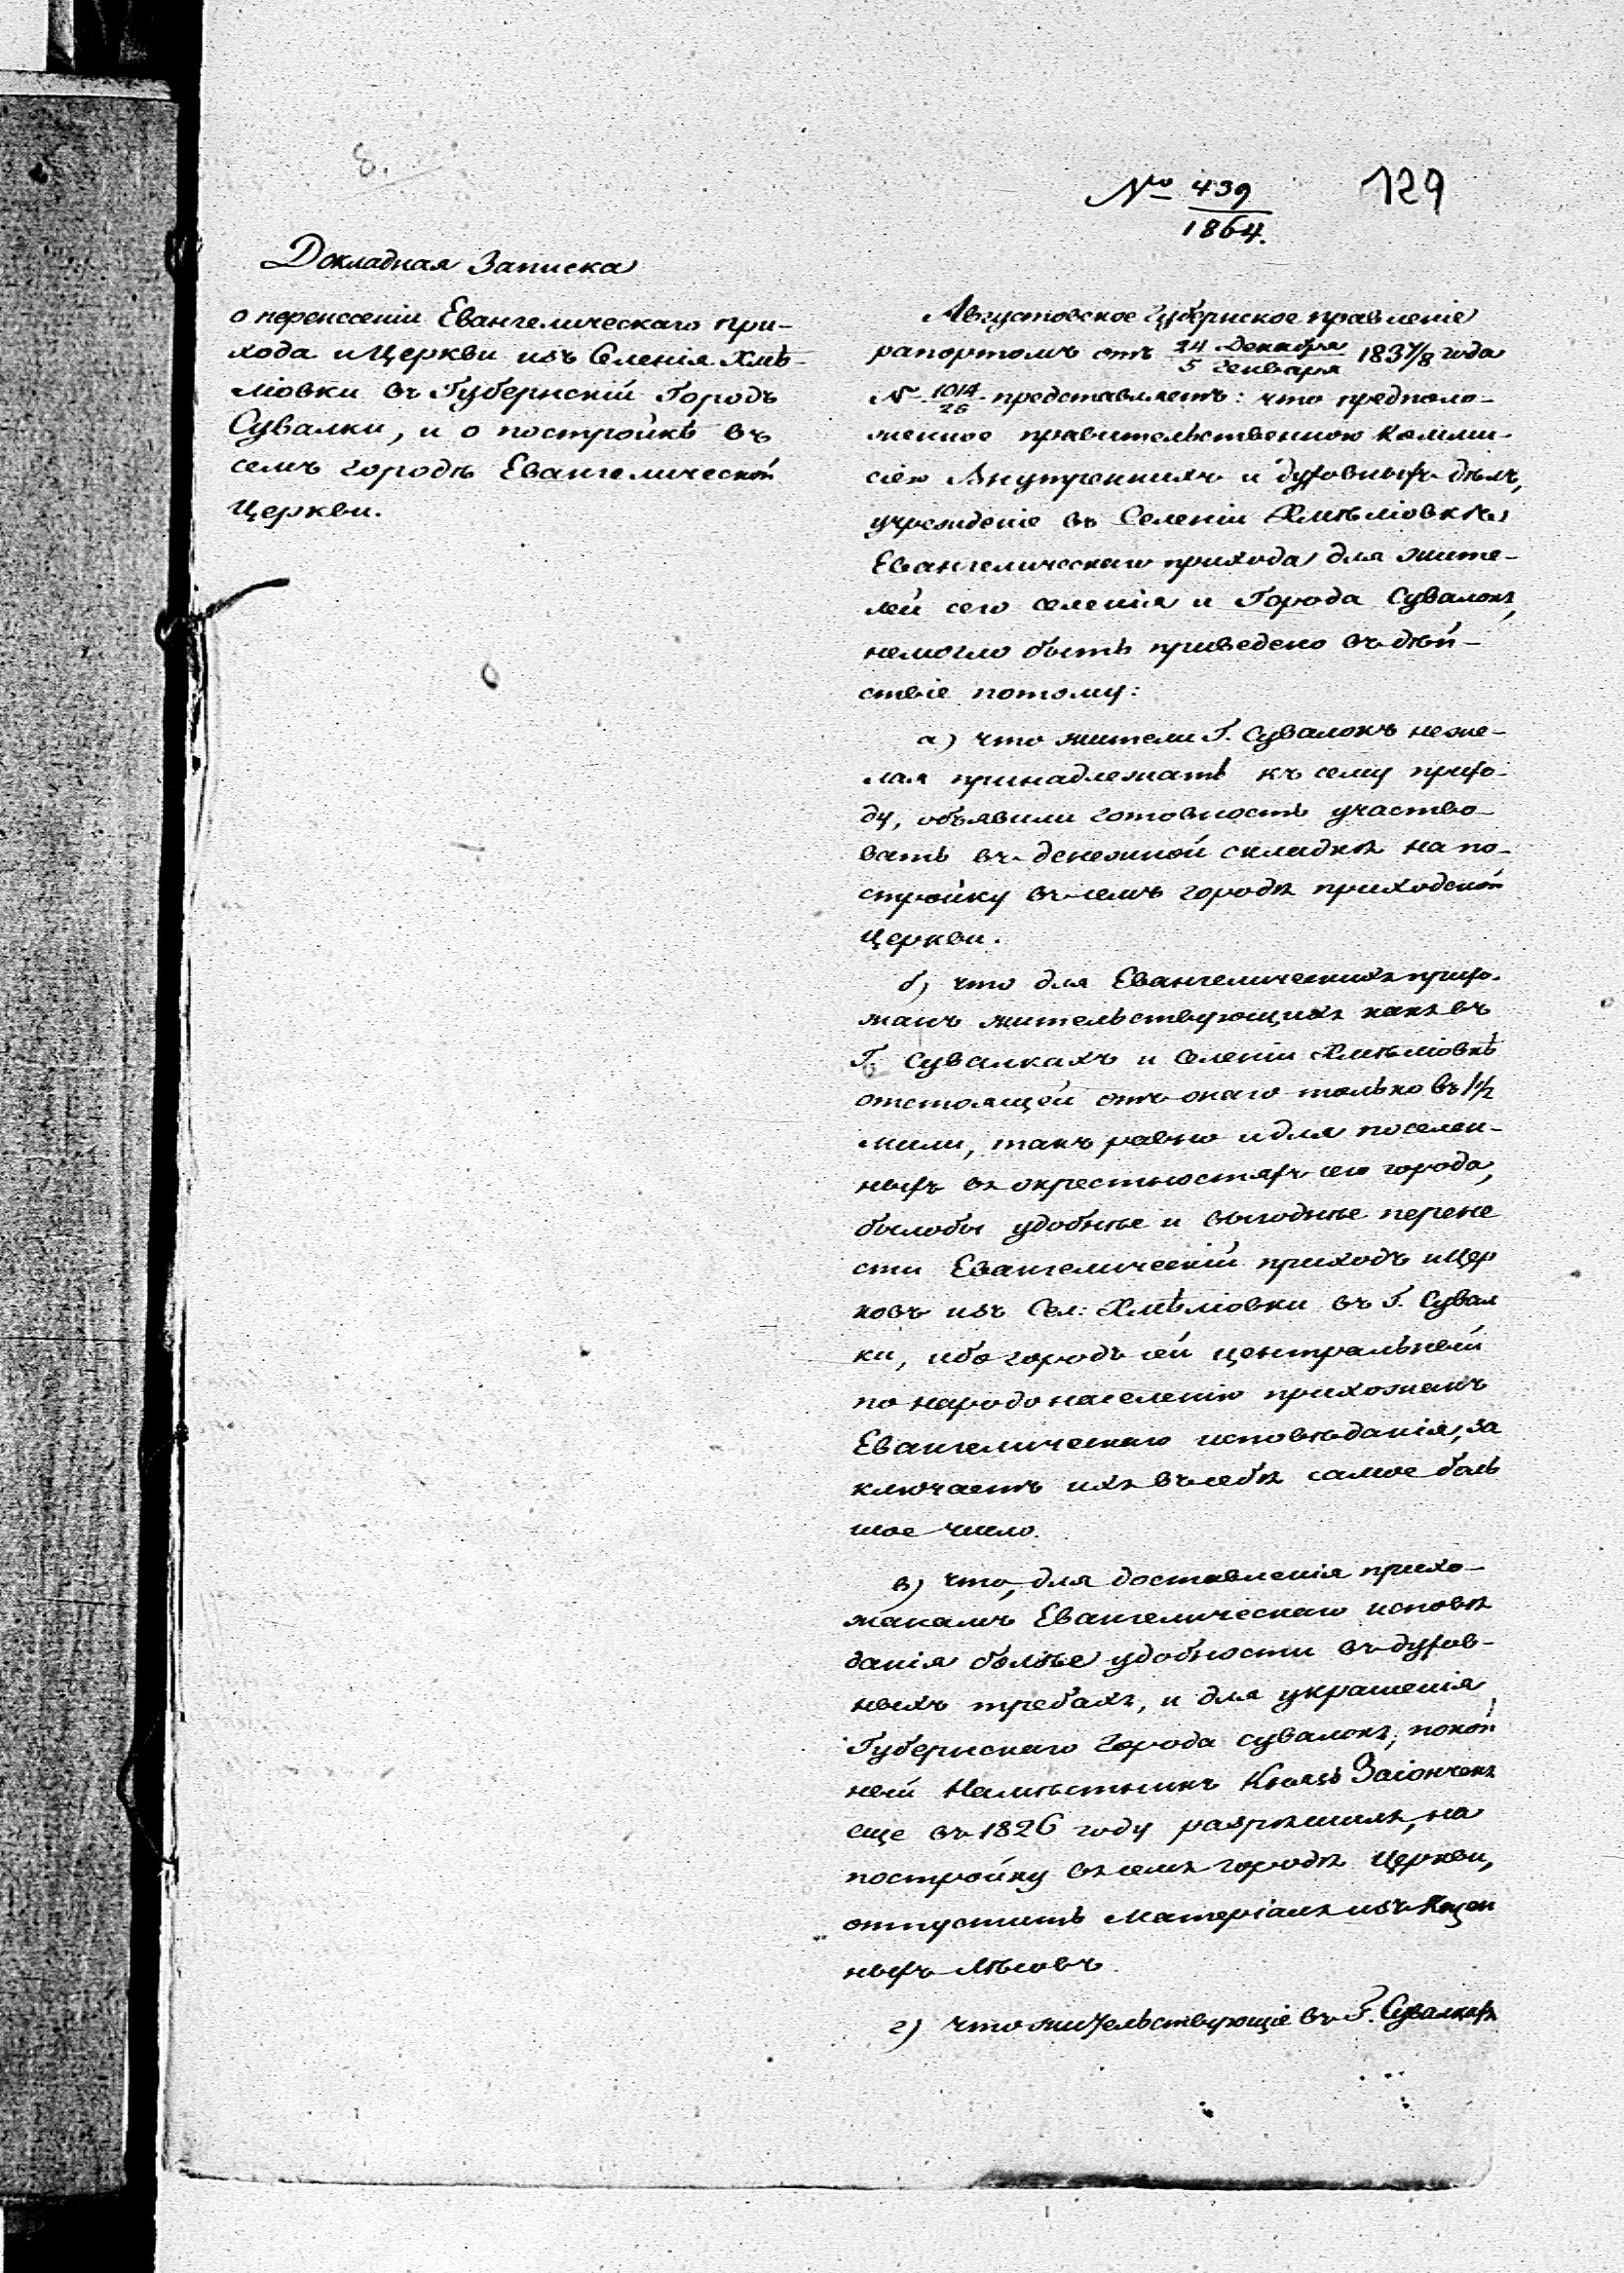 8.
№ 439/1864.
129
Докладная Записка
о перенесеніи Евангелическаго при-
хода и Церкви изъ Селенія Хмѣ-
ліовки въ Губернскій Городъ
Сувалки, и о постройкѣ въ
семъ городѣ Евангелической
Церкви.
Августовское Губернское правленіе
рапортомъ отъ 24 Декабря/5 Генваря 1837/8 года
№ 1014/26 представляетъ: что предполо-
женное правительственною Коммис-
сіею Внутреннихъ и духовныхъ дѣлъ,
учрежденіе въ Селеніи Хмѣліовкѣ
Евангелическаго прихода для жите-
лей сего селенія и Города Сувалокъ,
немогло быть приведено въ дѣй-
ствіе потому:
а) что жители Г. Сувалокъ неже-
лая принадлежать къ сему прихо-
ду, объявили готовность участво-
вать въ денежной складкѣ на по-
стройку въ семъ городѣ приходской
Церкви.
б) что для Евангелическихъ прихо-
жанъ жительствующихъ какъ въ
Г. Сувалкахъ и Селеніи Хмѣліовкѣ
отстоящей отъ онаго только въ 1½
мили, такъ равно и для поселен-
ныхъ въ окрестностяхъ сего города,
былобы удобнѣе и выгоднѣе перене
сти Евангелическій приходъ и Цер
ковъ изъ Сел: Хмѣліовки въ Г. Сувал
ки, ибо городъ сей центральный
по народонаселенію прихожанъ
Евангелическаго исповѣданія, за
ключаетъ ихъ въ себѣ самое боль
шое число.
в) что, для доставленія прихо-
жанамъ Евангелическаго исповѣ
данія болѣе удобности въ духов-
ныхъ требахъ, и для украшенія
Губернскаго Города Сувалокъ, покой
ный Намѣстникъ Князь Заіончекъ
еще въ 1826 году разрѣшилъ, на
постройку въ семъ городѣ Церкви,
отпустить матеріалъ изъ Казен
ныхъ лѣсовъ.
г) что жительствующіе въ Г. Сувалкахъ